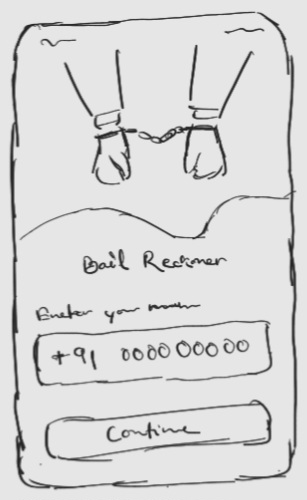 Bail Reckoner
Enter your
+91 000000000
Continue